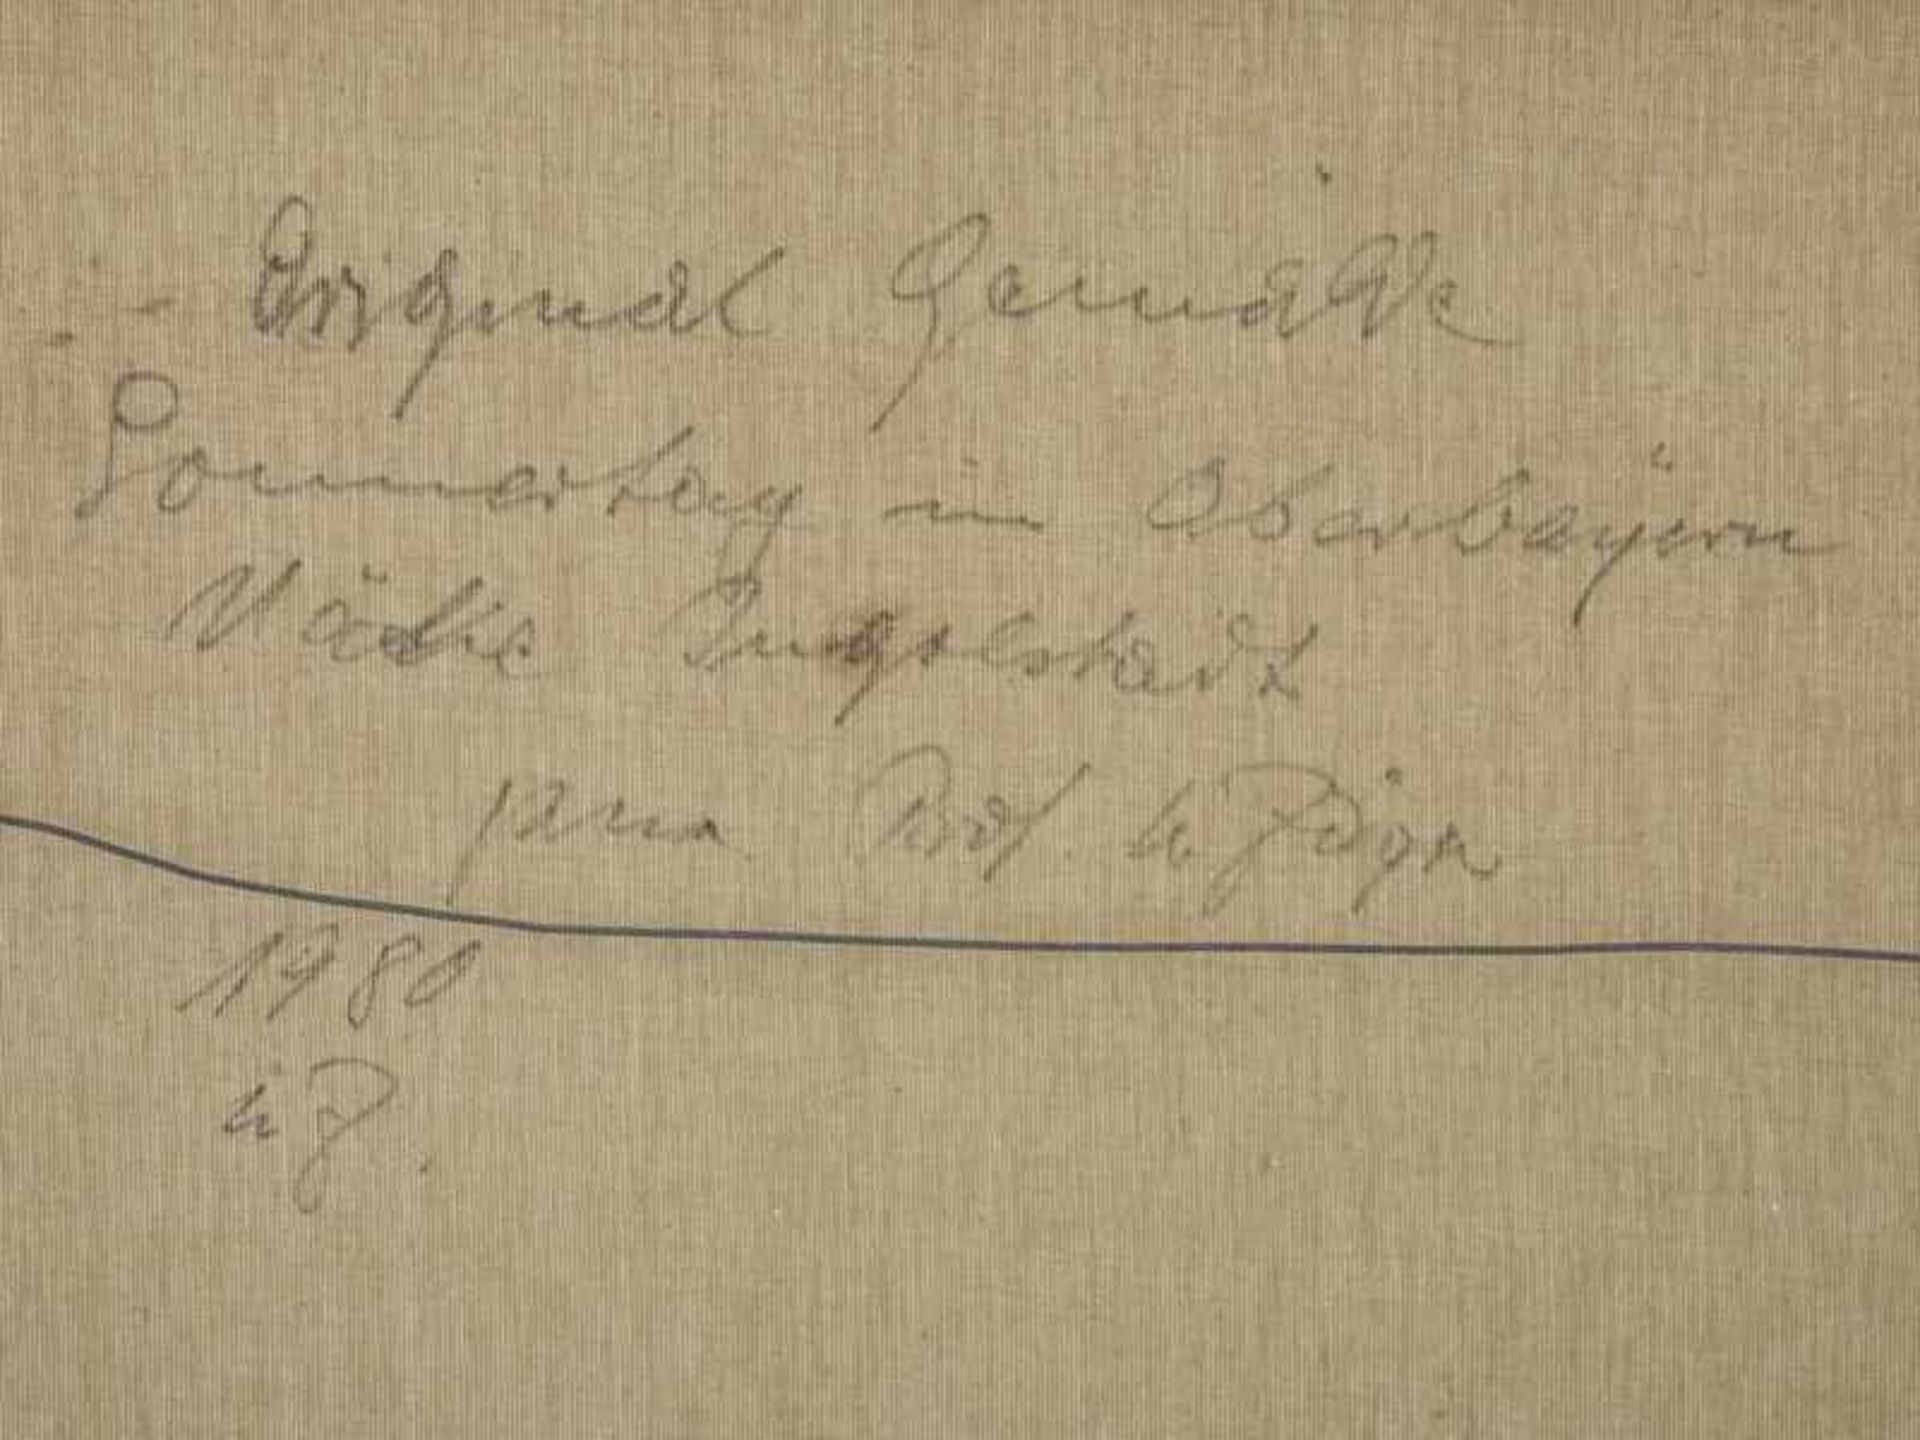 Original Gemälde
Sommertag in Oberbayern
Nähe Ingolstadt
Prof.
1980